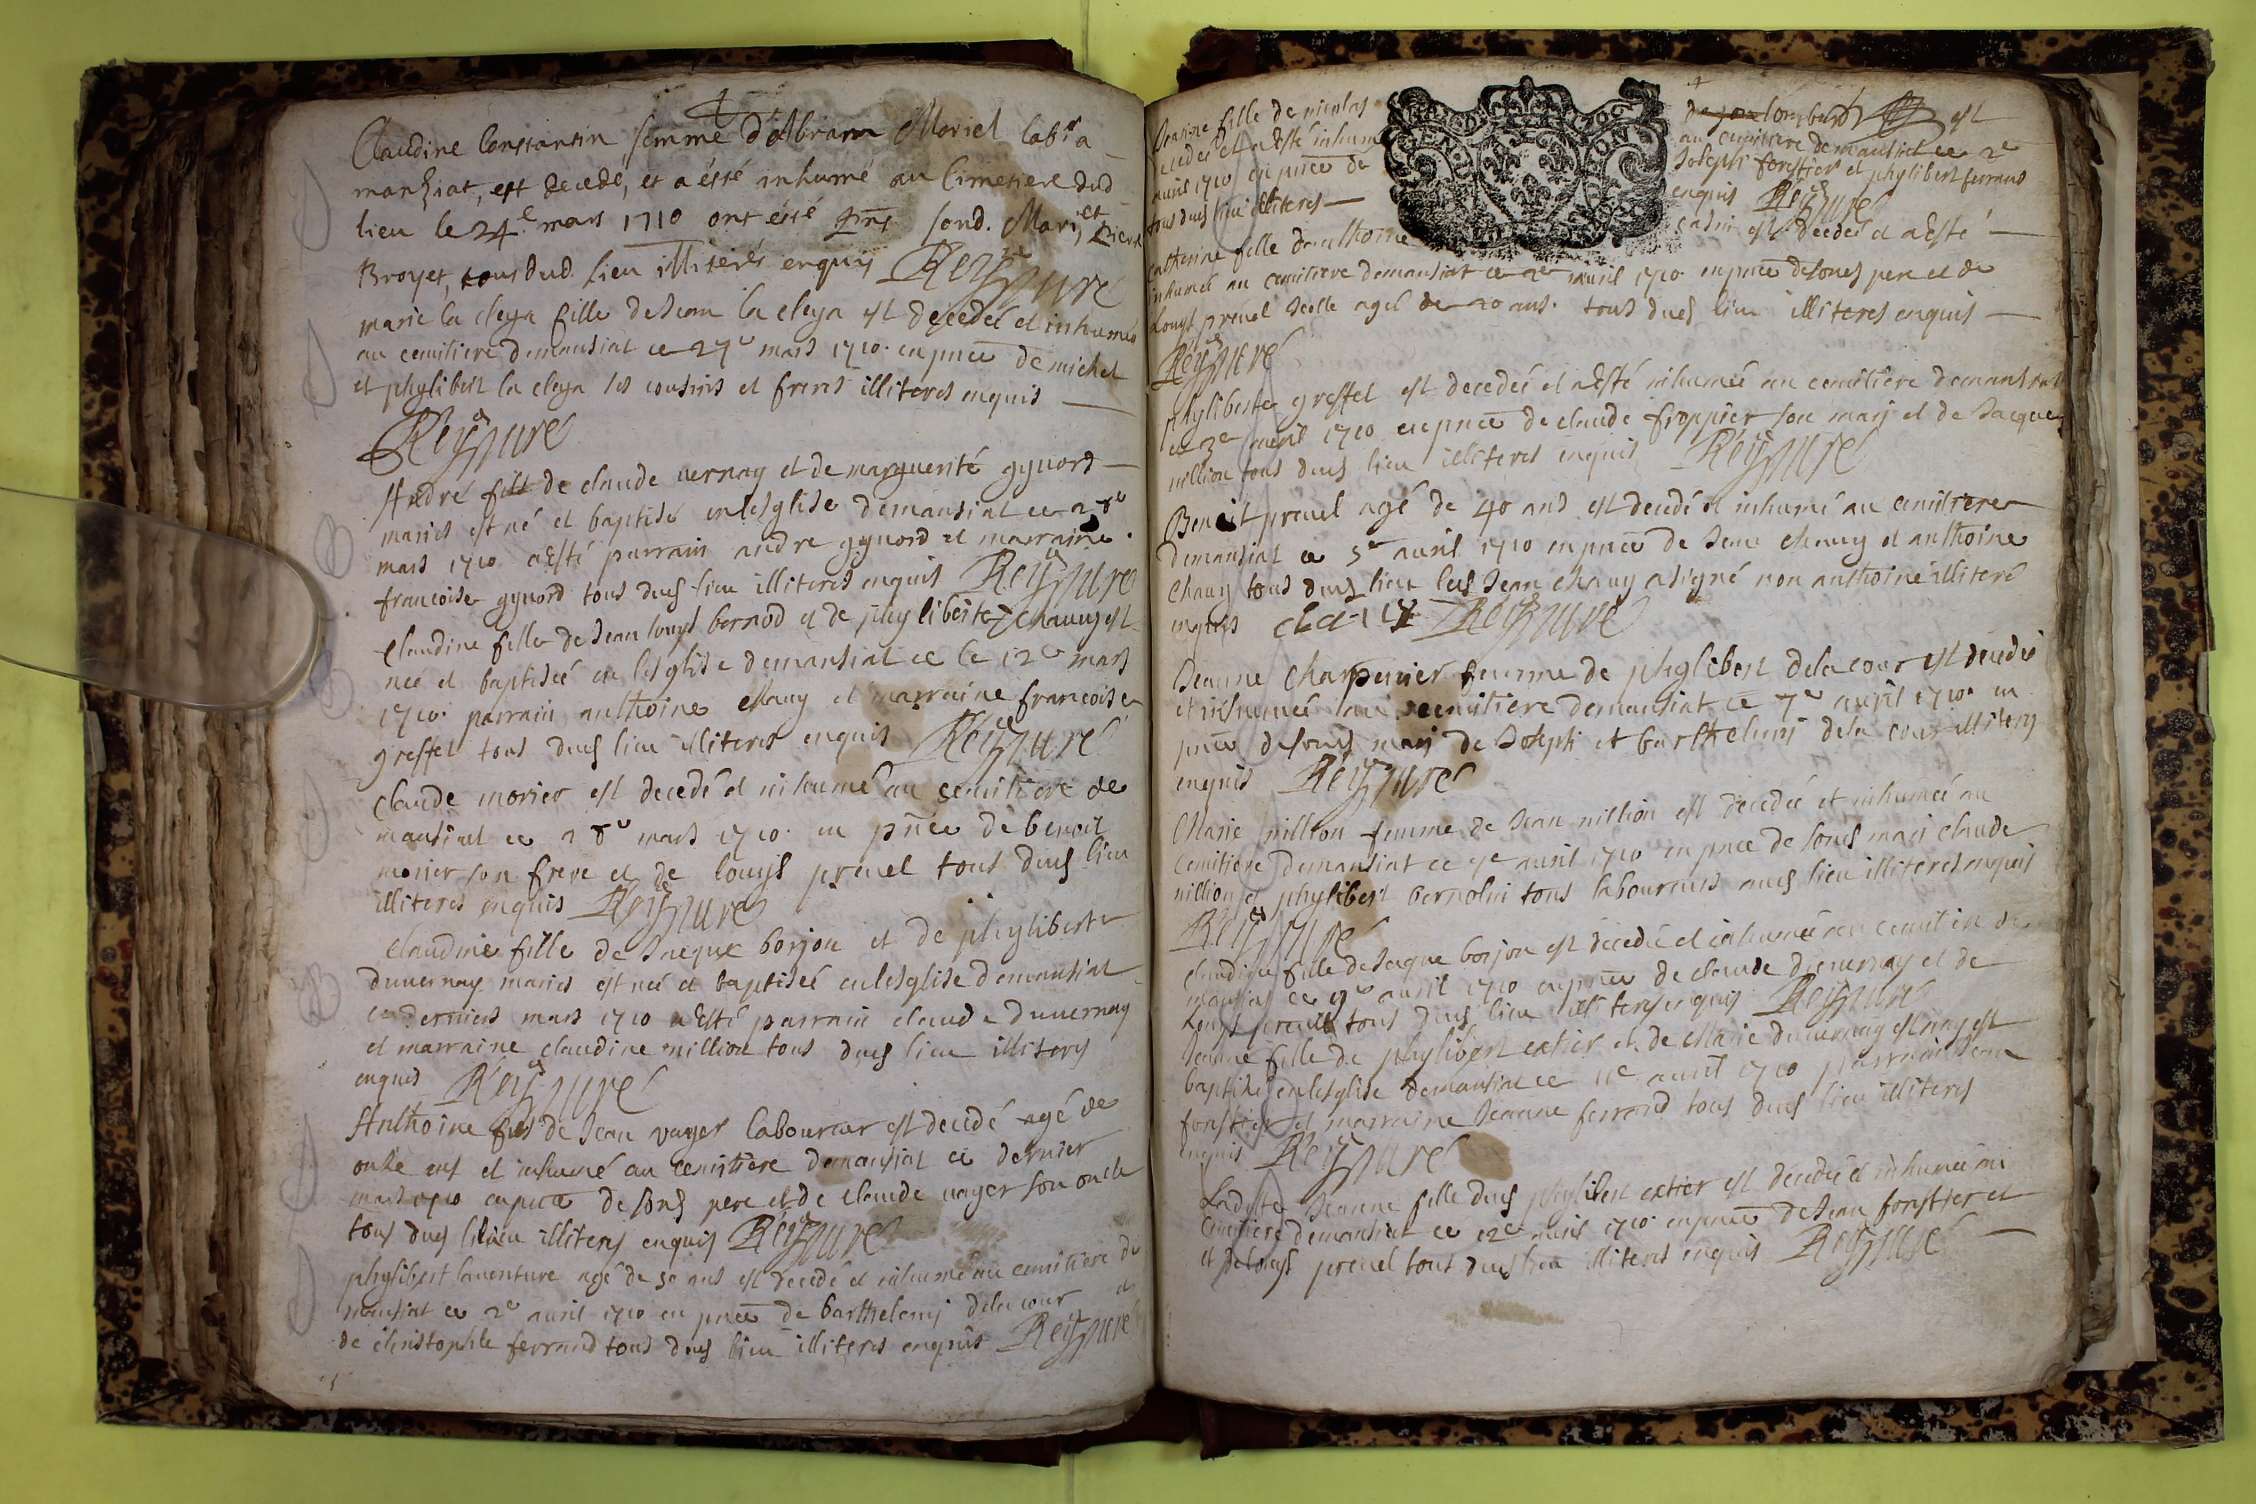 Claudine Constantin femme d'Abram Moriel labr a
manziat, est decedé, et a ésté inhumé au Cimetiere dud
lieu le 24e mars 1710 ont ésté pnts sond. Mari, et Pierre
Broyer, tous dud. lieu illiterés enquis Reyssure
marie la cleya fille de Jean la cleya est decedeé et inhumeé
au cemitiere demansiat ce 27e mars 1710 en pnce de michel
et phylibert la cleya ses cousins et freres illiteres enquis
Reyssure curé
André fils de claude vernay et de marguerite gynord
mariés est né et baptisé en lesglise demansiat ce 28e
mars 1710 a Esté parrain andre gynord et marraine
francoise gynord tous duds lieu illiteres enquis Reyssure
Claudine fille de Jean louys bernod et de phyliberte chavuy est
neé et baptiseé en lesglise demansiat ce le 12e mars
1710 parrain anthoine chavuy et marraine francoise
greffet tous duds lieu illiteres enquis Reyssure
claude morier est decedé et inhumé au cemitiere de
mansiat ce 28e mars 1710 en pnce de benoit
morier son frere et de louys prevel tous duds lieu
illiteres enquis Reyssure
claudine fille de Jacque borjon et de phyliberte
duvernay mariés est neé et baptiseé en lesglise demansiat
ce derniers mars 1710 a Esté parrain claude duvernay
et marraine claudine million tous duds lieu illiterés
enquis Reyssure
Anthoine fils de Jean voyer laboureur est decedé agé de
onze ans et inhumé au cemitiere demansiat ce dernier
mars 1710 en pnce de sonds pere et de claude voyer son oncle
tous duds lieu illiterés enquis Reyssure
phylibert laventure agé de 50 ans est decedé et inhumé au cemitiere de
mansiat ce 2e avril 1710 en pnce de barthelemy delacour et
de christophle ferrand tous duds lieu illiteres enquis Reyssure
fille de nicolas de est
decedeé et a Esté inhumeé au cemitiere demansiat ce 2e
avril 1710 en pnce de Joseph forestier et phylibert ferrand
tous duds lieu illiteres enquis Reyssure
catherine fille danthoine est decedeé et a Esté
inhumeé au cemitiere demansiat ce 2e avril 1710 en pnce de sonds pere et de
Louys prevel agé de 20 ans. tous duds lieu illiteres enquis
Reyssure
phyliberte greffet est decedeé et a Esté inhumeé au cemitiere demansiat
ce 3e avril 1710 en pnce de claude froppier son mary et de Jacque
million tous duds lieu illiteres enquis Reyssure
Benoit prevel agé de 40 ans est decedé et inhumé au cemitiere
demansiat ce 5e avril 1710 en pnce de Jean chavuy et anthoine
chavuy tous duds lieu leds Jean chavuy a signé non anthoine illiteré
enquis Reyssure
Jeanne charpenier femme de phylibert dela cour est decedeé
et inhumeé au cemitiere demansiat ce 7e avril 1710 en
pnce de sonds mary de Joseph et barthelemy dela cour illiterés
enquis Reyssure
Marie million femme de Jean million est decedeé et inhumeé au
cemitiere demansiat ce 9e avril 1710 en pnce de sonds mari claude
million et phylibert bernolin tous laboureurs auds lieu illiteres enquis
Reyssure
claudine fille de Jacque borjon est decedeé et inhumeé au cemitiere de
mansiat ce 9e avril 1710 en pnce de claude duvernay et de
Louys prevel tous duds lieu illiterés enquis Reyssure
Jeanne fille de phylibert extier et de Marie duvernay est neé et
baptiseé en lesglise demansiat ce 11e avril 1710 parrain Jean
forestier et marraine Jeanne ferrand tous duds lieu illiteres
enquis Reyssure
Ladite Jeanne fille duds phylibert extier est decedeé et inhumeé au
cemitiere demansiat ce 12e avril 1710 en pnce de Jean forestier et
et de louys prevel tous duds lieu illiteres enquis Reyssure